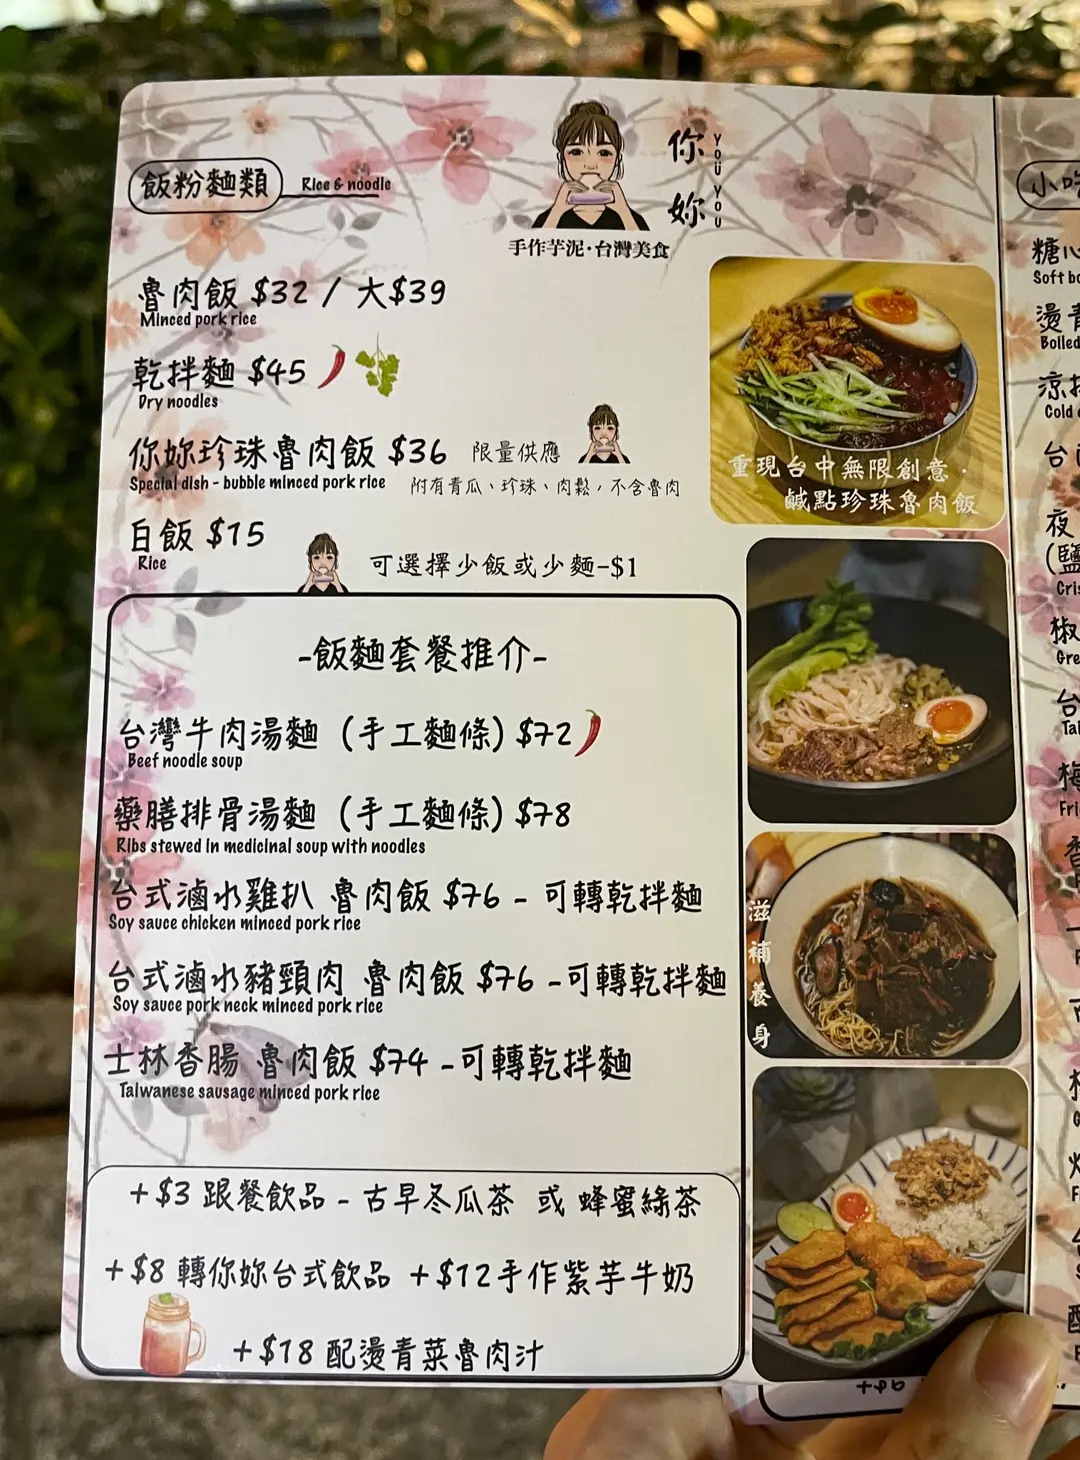 飯粉麵類 Rice & noodle
你妳
YOU YOU
手作芋泥·台灣美食
魯肉飯 $32 / 大$39
Minced pork rice
乾拌麵 $45
Dry noodles
你妳珍珠魯肉飯 $36 限量供應
Special dish - bubble minced pork rice 附有青瓜、珍珠、肉鬆，不含魯肉
白飯 $15
Rice
可選擇少飯或少麵-$1
重現台中無限創意·
鹹點珍珠魯肉飯
-飯麵套餐推介-
台灣牛肉湯麵 (手工麵條) $72
Beef noodle soup
藥膳排骨湯麵 (手工麵條) $78
Ribs stewed in medicinal soup with noodles
台式滷水雞扒 魯肉飯 $76 - 可轉乾拌麵
Soy sauce chicken minced pork rice
台式滷水豬頸肉 魯肉飯 $76 -可轉乾拌麵
Soy sauce pork neck minced pork rice
士林香腸 魯肉飯 $74 -可轉乾拌麵
Taiwanese sausage minced pork rice
滋補養身
+$3 跟餐飲品 - 古早冬瓜茶 或 蜂蜜綠茶
+$8 轉你妳台式飲品 +$12手作紫芋牛奶
+$18 配燙青菜魯肉汁
小吃
糖心
Soft bo
燙青
Boiled
涼拌
Cold
台
夜
(鹽
Cris
椒
Gre
台
Tai
梅
Fri
香